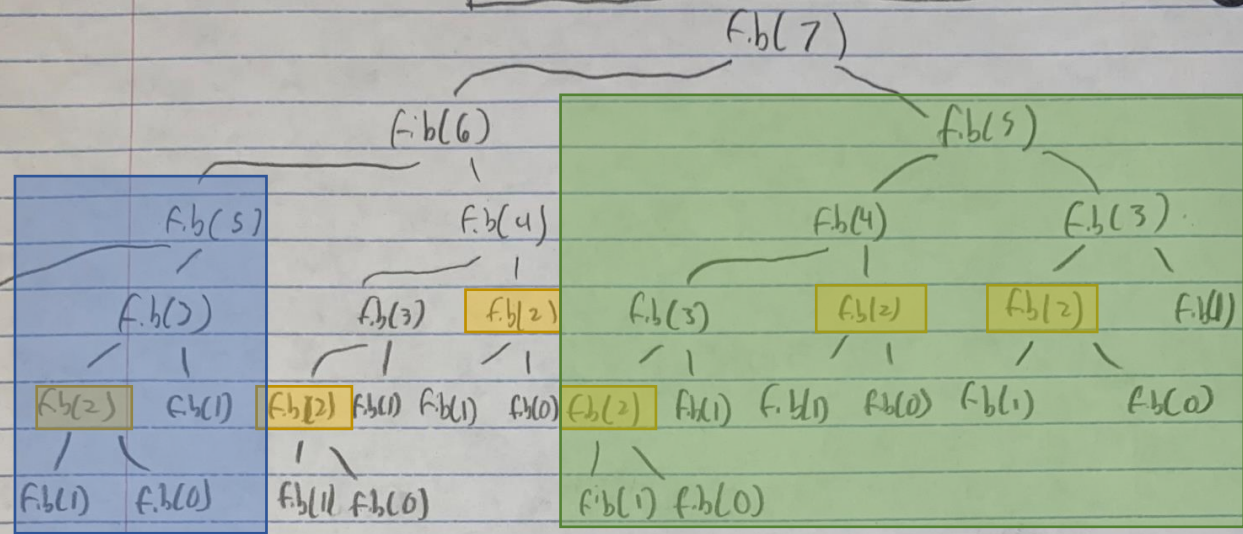 fib(7)
fib(6) fib(5)
fib(5) fib(4) fib(4) fib(3)
fib(3) fib(3) fib(2) fib(3) fib(2) fib(2) fib(1)
fib(2) fib(1) fib(2) fib(1) fib(1) fib(0) fib(2) fib(1) fib(1) fib(0) fib(1) fib(0)
fib(1) fib(0) fib(1) fib(0) fib(1) fib(0)